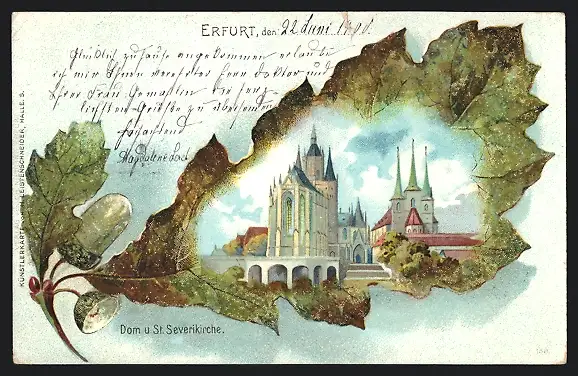 ERFURT, den 22 Juni
Glücklich zuhause angekommen erlaube
ich mir Ihnen verehrter Herr Doktor und
Ihrer Frau Gemahlin die herz-
lichsten Grüße zu übersenden
Hochachtend
Magdalene
KÜNSTLERKARTE
REIFENSCHNEIDER, HALLE. S.
Dom u St. Severikirche.